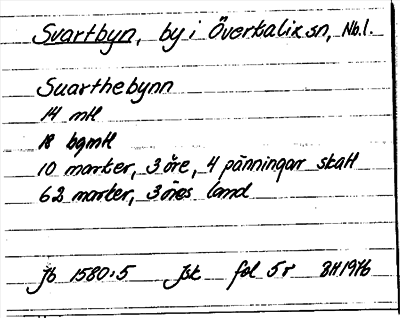 Svartbyn, by i Överkalix sn, Nb.l.
Suarthebynn
14 mtl
18 bgmtl
10 marker, 3 öre, 4 pänningar skatt
62 marker, 3 öres land
Jb 1580:5 Jsk fol 5r BH 1976